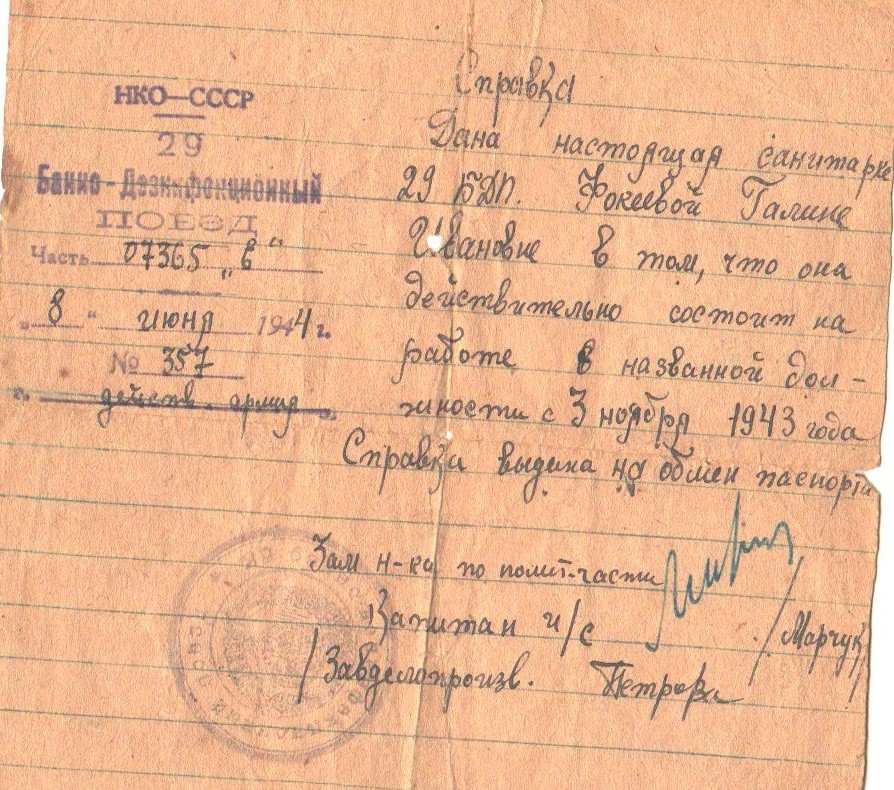 НКО—СССР
29
Банно-Дезинфекционный
ПОЕЗД
Часть 07365 „в“
„8“ июня 1944 г.
№ 357
действ. армия
Справка
Дана настоящая санитарке
29 БДП. Фокеевой Галине
Ивановне в том, что она
действительно состоит на
работе в названной дол-
жности с 3 ноября 1943 года
Справка выдана на обмен паспорта
Зам н-ка по полит-части
Капитан и/с /Марчук/
/Завделопроизв. Петрова